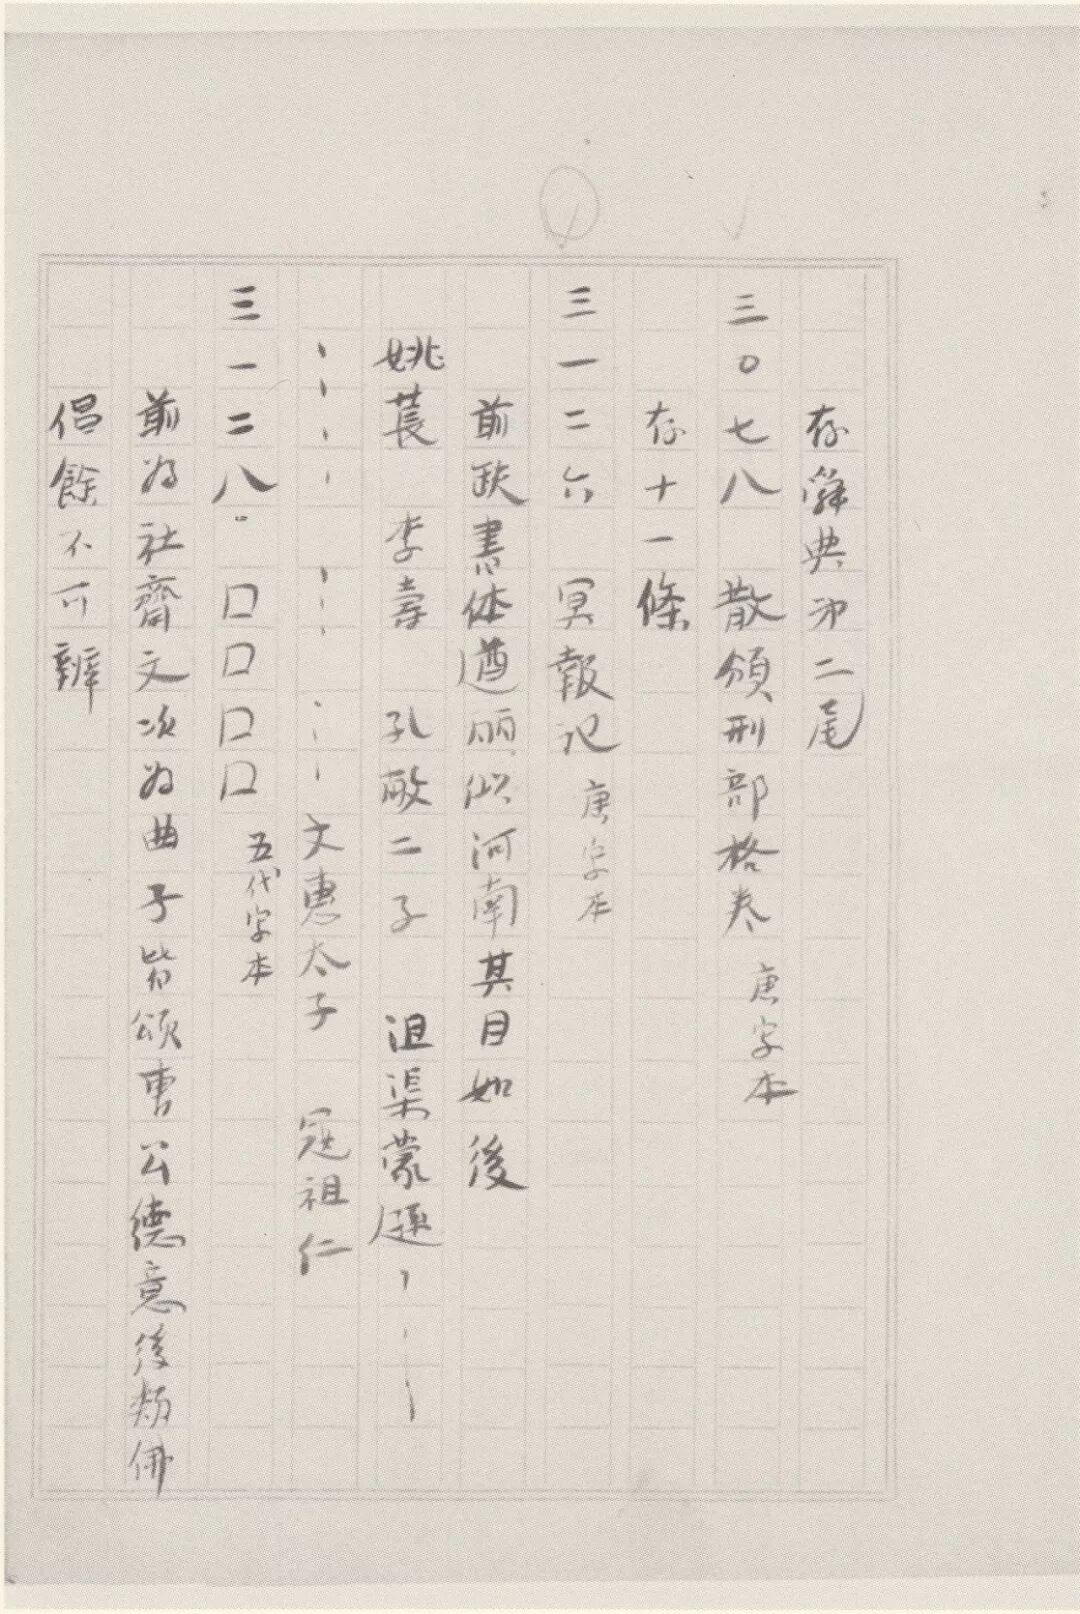 存舜典第二尾
三〇七八　散頒刑部格卷　唐字本
存十一條
三一二六　冥報记　唐字本
前跋書体遒丽似河南其目如後
姚萇　李壽　孔敞二子　沮渠蒙遜
文惠太子　冦祖仁
三一二八．口口口口　五代字本
前為社齋文次為曲子皆頌曹公德意後類佛
倡餘不可辨